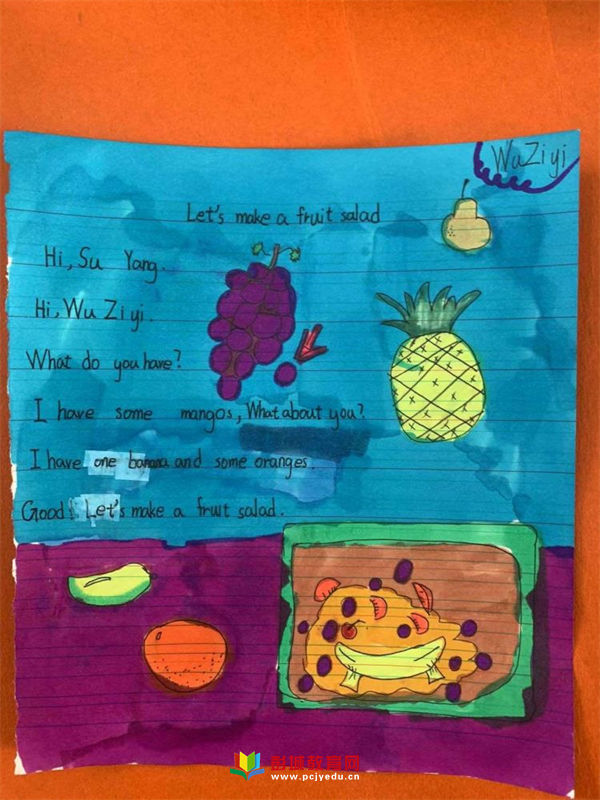 Wu Zi yi
Let's make a fruit salad
Hi, Su Yang.
Hi, Wu Zi yi.
What do you have?
I have some mangos, What about you?
I have one banana and some oranges.
Good! Let's make a fruit salad.
彭琳教育网
www.pcjyedu.cn